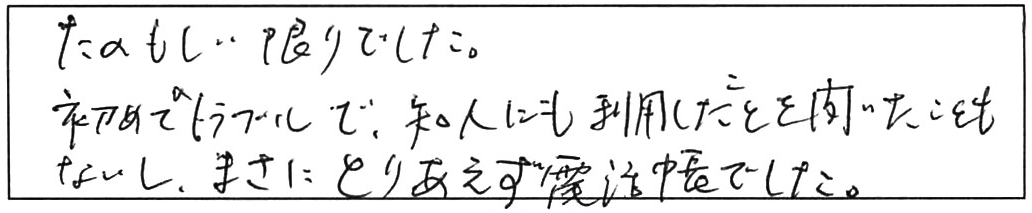 たのもしい限りでした。
初めてのトラブルで、知人にも利用したことを聞いたことも
ないし、まさにとりあえず電話帳でした。